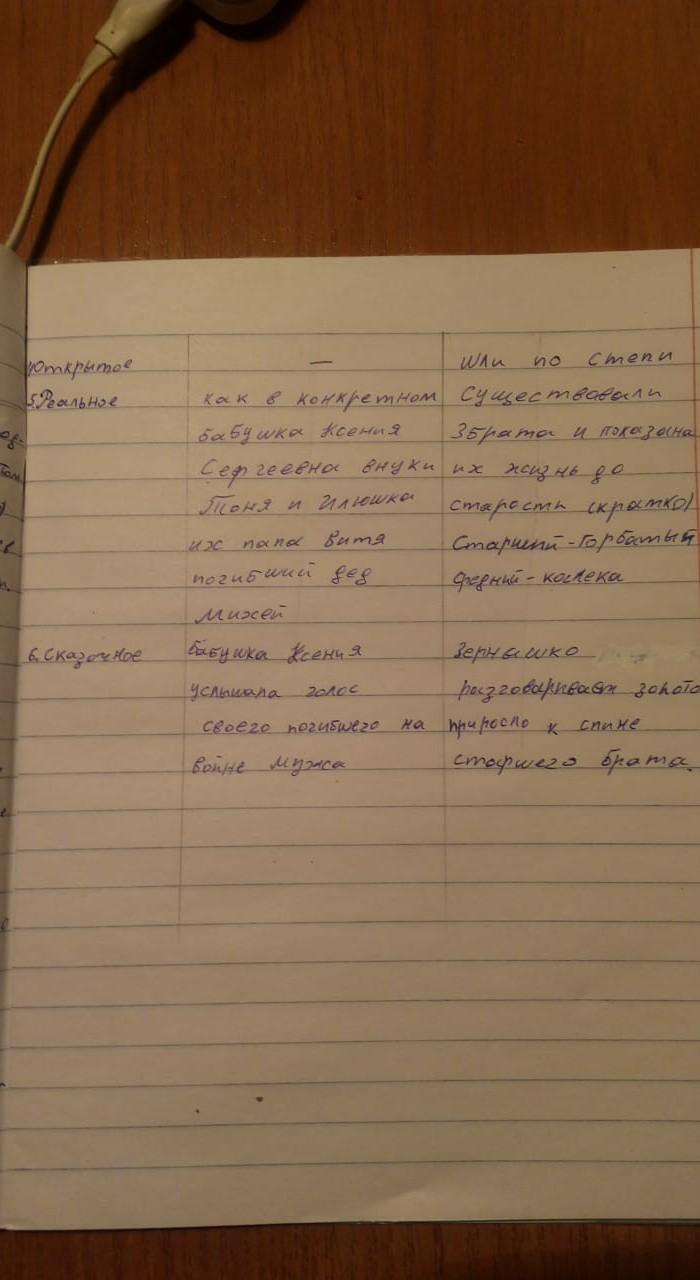 4)Открытое — шли по степи
5.Реальное как в конкретном существовали
бабушка Ксения 3брата и показана
Сергеевна внуки их жизнь до
Тоня и Илюшка старости (кратко)
их папа Витя Старший-Горбатый
погибший дед Средний-колека
Михей
6.Сказочное бабушка Ксения Зернышко
услышала голос разговаривает золото
своего погибшего на приросло к спине
войне мужа старшего брата.